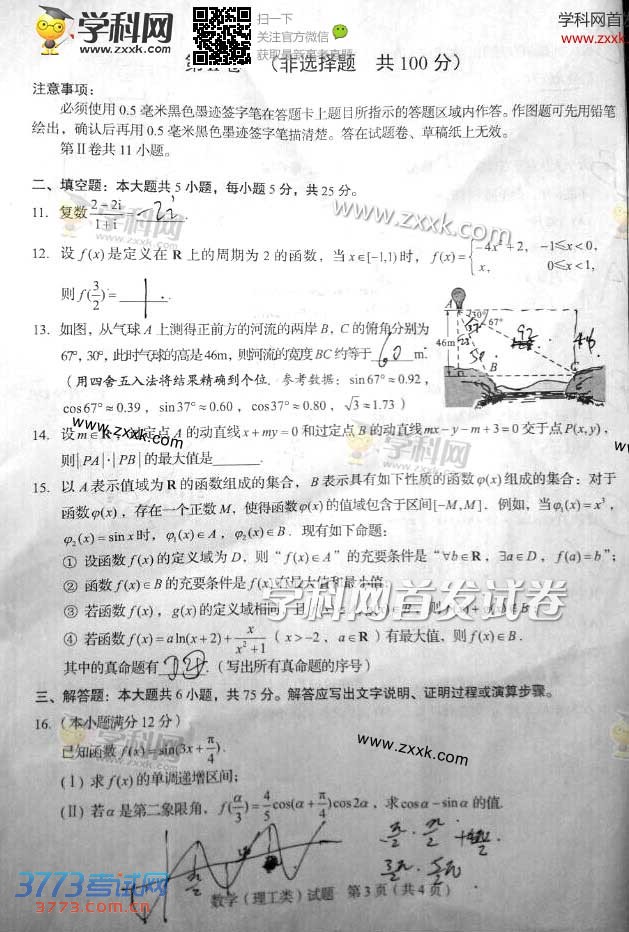 学科网
www.zxxk.com
扫一下
关注官方微信
获取最新高考真题
学科网首发
www.zxxk.
（非选择题 共 100 分）
注意事项：
必须使用 0.5 毫米黑色墨迹签字笔在答题卡上题目所指示的答题区域内作答。作图题可先用铅笔
绘出，确认后再用 0.5 毫米黑色墨迹签字笔描清楚。答在试题卷、草稿纸上无效。
第Ⅱ卷共 11 小题。
二、填空题：本大题共 5 小题，每小题 5 分，共 25 分。
11. 复数 (2-2i)/(1+i) = -2i .
学科网
www.zxxk.com
12. 设 f(x) 是定义在 R 上的周期为 2 的函数，当 x∈[-1,1) 时，f(x)= { -4x²+2, -1≤x<0,
x, 0≤x<1,
则 f(3/2) = 1 .
13. 如图，从气球 A 上测得正前方的河流的两岸 B，C 的俯角分别为
67°，30°，此时气球的高是 46m，则河流的宽度 BC 约等于 60 m.
（用四舍五入法将结果精确到个位. 参考数据：sin67°≈0.92，
cos67°≈0.39，sin37°≈0.60，cos37°≈0.80，√3≈1.73）
A 30° 67°
46m
92
46
B C
www.zxxk.com
14. 设 m∈R，过定点 A 的动直线 x+my=0 和过定点 B 的动直线 mx-y-m+3=0 交于点 P(x,y)，
则 |PA|·|PB| 的最大值是 ______.
学科网
www.zxxk.com
15. 以 A 表示值域为 R 的函数组成的集合，B 表示具有如下性质的函数 φ(x) 组成的集合：对于
函数 φ(x)，存在一个正数 M，使得函数 φ(x) 的值域包含于区间 [-M,M]. 例如，当 φ₁(x)=x³，
φ₂(x)=sin x 时，φ₁(x)∈A，φ₂(x)∈B. 现有如下命题：
① 设函数 f(x) 的定义域为 D，则“f(x)∈A”的充要条件是“∀b∈R，∃a∈D，f(a)=b”；
② 函数 f(x)∈B 的充要条件是 f(x) 有最大值和最小值
学科网首发试卷
③ 若函数 f(x)，g(x) 的定义域相同
④ 若函数 f(x)=a ln(x+2)+x/(x²+1)（x>-2，a∈R）有最大值，则 f(x)∈B.
其中的真命题有 ______.（写出所有真命题的序号）
三、解答题：本大题共 6 小题，共 75 分。解答应写出文字说明、证明过程或演算步骤。
16.（本小题满分 12 分）
学科网
www.zxxk.com
已知函数 f(x)=sin(3x+π/4).
（Ⅰ）求 f(x) 的单调递增区间；
（Ⅱ）若 α 是第二象限角，f(α/3)=4/5 cos(α+π/4)cos2α，求 cosα-sinα 的值.
数学（理工类）试题 第 3 页（共 4 页）
3773考试网
3773.com.cn